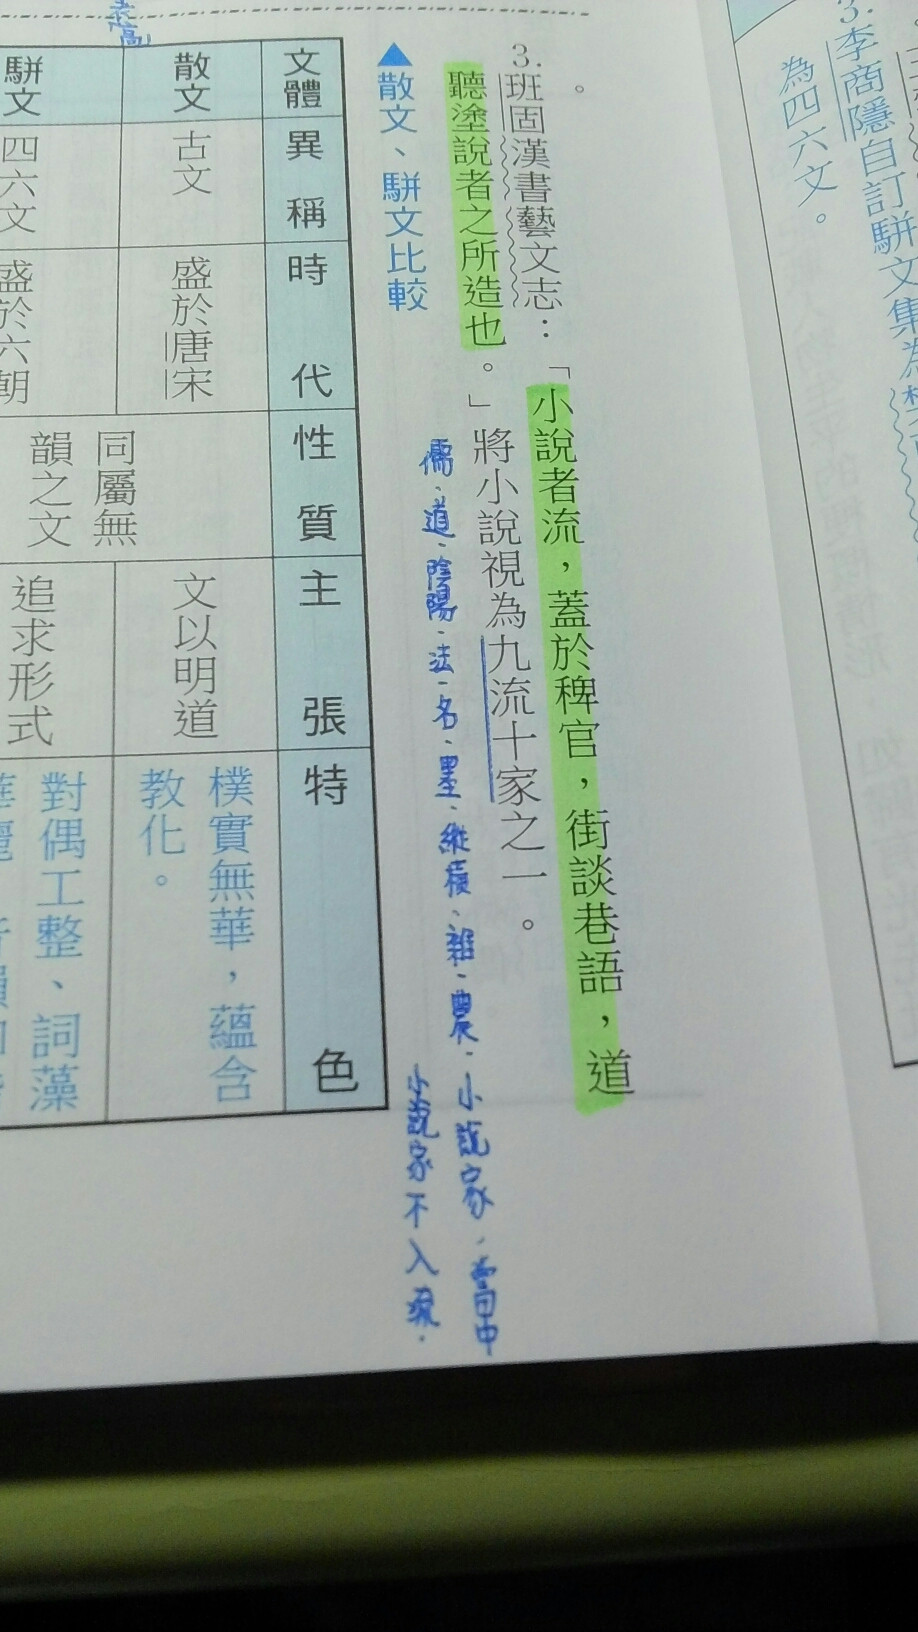 3.李商隱自訂駢文集為樊
為四六文。
。
3.班固漢書藝文志：「小說者流，蓋於稗官，街談巷語，道
聽塗說者之所造也。」將小說視為九流十家之一。
儒、道、陰陽、法、名、墨、縱橫、雜、農、小說家，當中
小說家不入流。
▲散文、駢文比較
文體 異稱 時代 性質 主張 特色
散文 古文 盛於唐宋 同屬無韻之文 文以明道 樸實無華，蘊含
教化。
駢文 四六文 盛於六朝 追求形式 對偶工整、詞藻